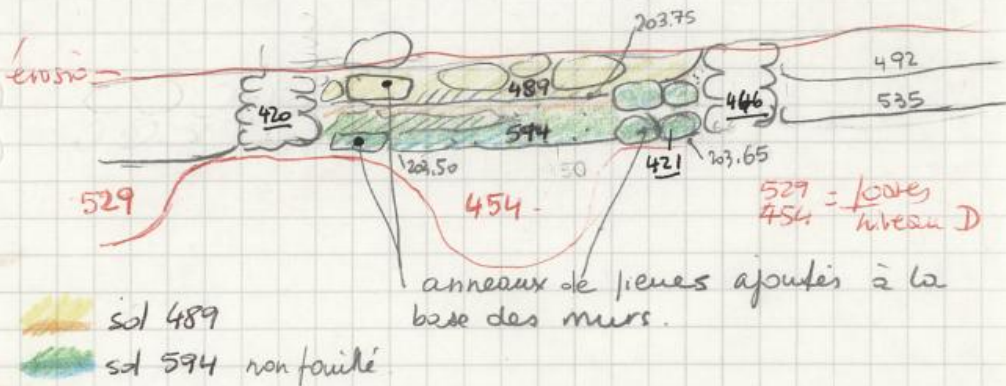 203.75
érosion
489
492
420
446
535
594
421
203.50
50
203.65
529
454
529 = fosses
454 niveau D
anneaux de pierres ajoutés à la
base des murs.
sol 489
sol 594 non fouillé